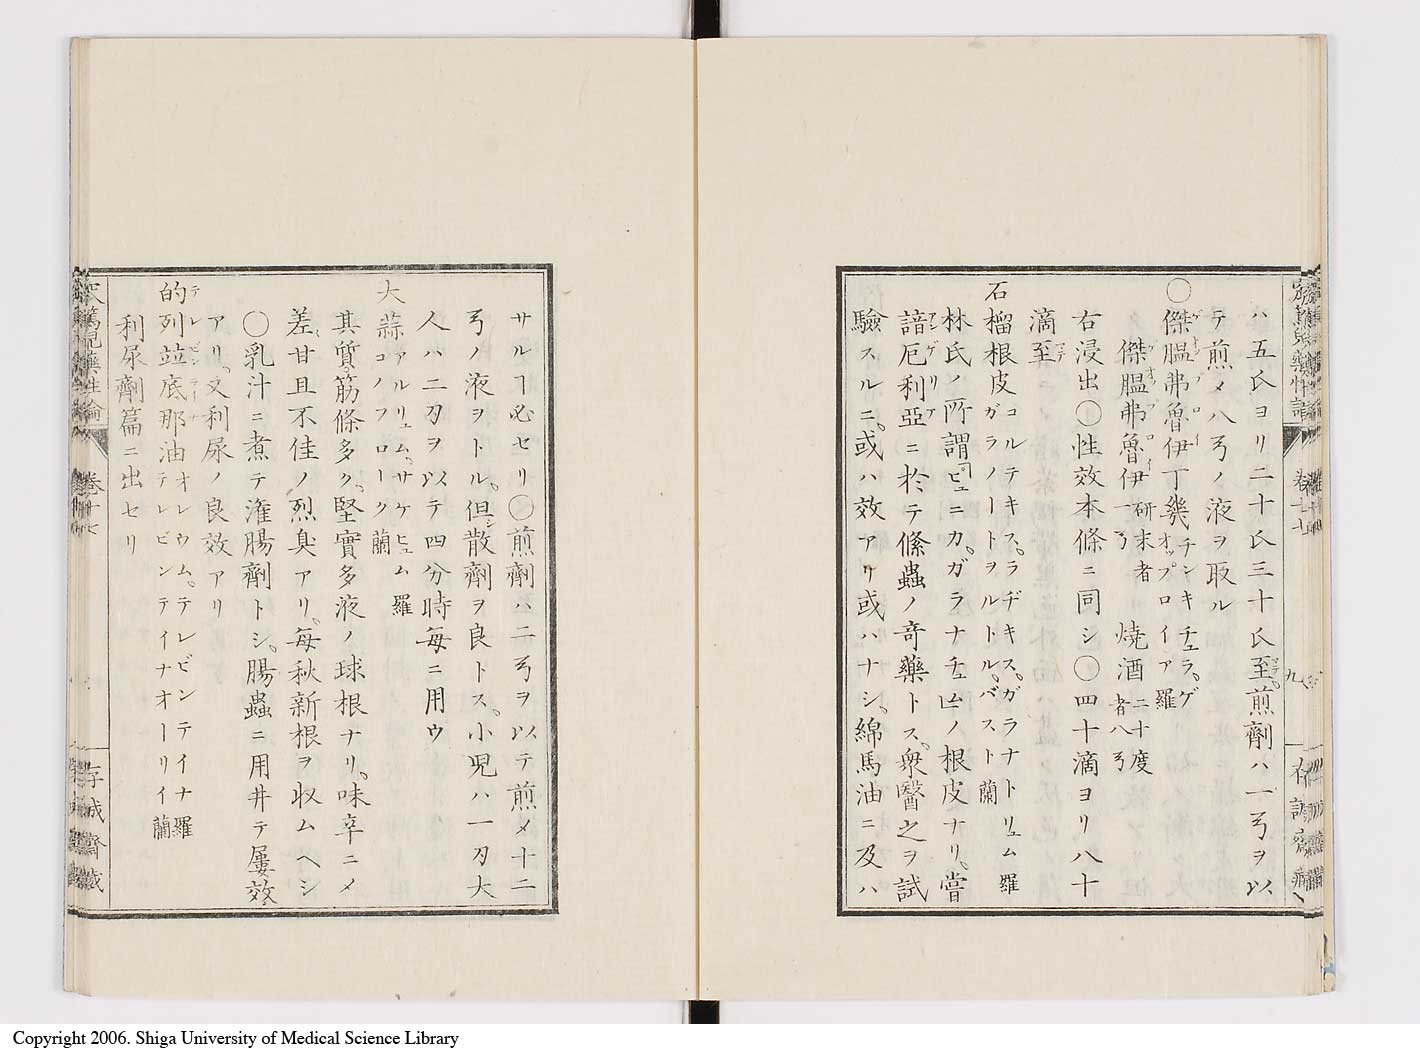 ハ五氏ヨリ二十氏三十氏至マデ煎劑ハ一弓ヲ以
テ煎メ八弓ノ液ヲ取ル
〇傑膃弗魯伊丁幾チンキチュラ。ゲオップロイア 羅
傑膃弗魯伊 研末者一弓 燒酒 二十度者八弓
右浸出〇性效本條ニ同シ〇四十滴ヨリ八十
滴至マデ
石榴根皮 コルテキス。ラヂキス。ガラナトリュム 羅 ガラノートヲルトル。バスト 蘭
林氏ノ所謂ピュニカ。ガラナチュムノ根皮ナリ。嘗
諳厄利亞ニ於テ絛蟲ノ奇藥トス。衆醫之ヲ試
驗スルニ。或ハ效アリ或ハナシ。綿馬油ニ及ハ
卷十七
九
サルヿ必セリ〇煎劑ハ二弓ヲ以テ煎メ十二
弓ノ液ヲトル。但シ散劑ヲ良トス。小兒ハ一刃大
人ハ二刃ヲ以テ四分時毎ニ用ウ
大蒜 アルリュム。サケヒュム 羅 コノフローク 蘭
其質筋條多ク。堅實多液ノ球根ナリ。味辛ニメ
差甘且不佳ノ烈臭アリ。毎秋新根ヲ収ムヘシ
〇乳汁ニ煮テ潅腸劑トシ。腸蟲ニ用井テ屢效
アリ。又利尿ノ良效アリ
的列竝底那油 テレビンテーナ オレウム。テレビンテイナ 羅 テレビンテイナオーリイ 蘭
利尿劑篇ニ出セリ
篤兒藥性論
卷十七
存誠齋藏